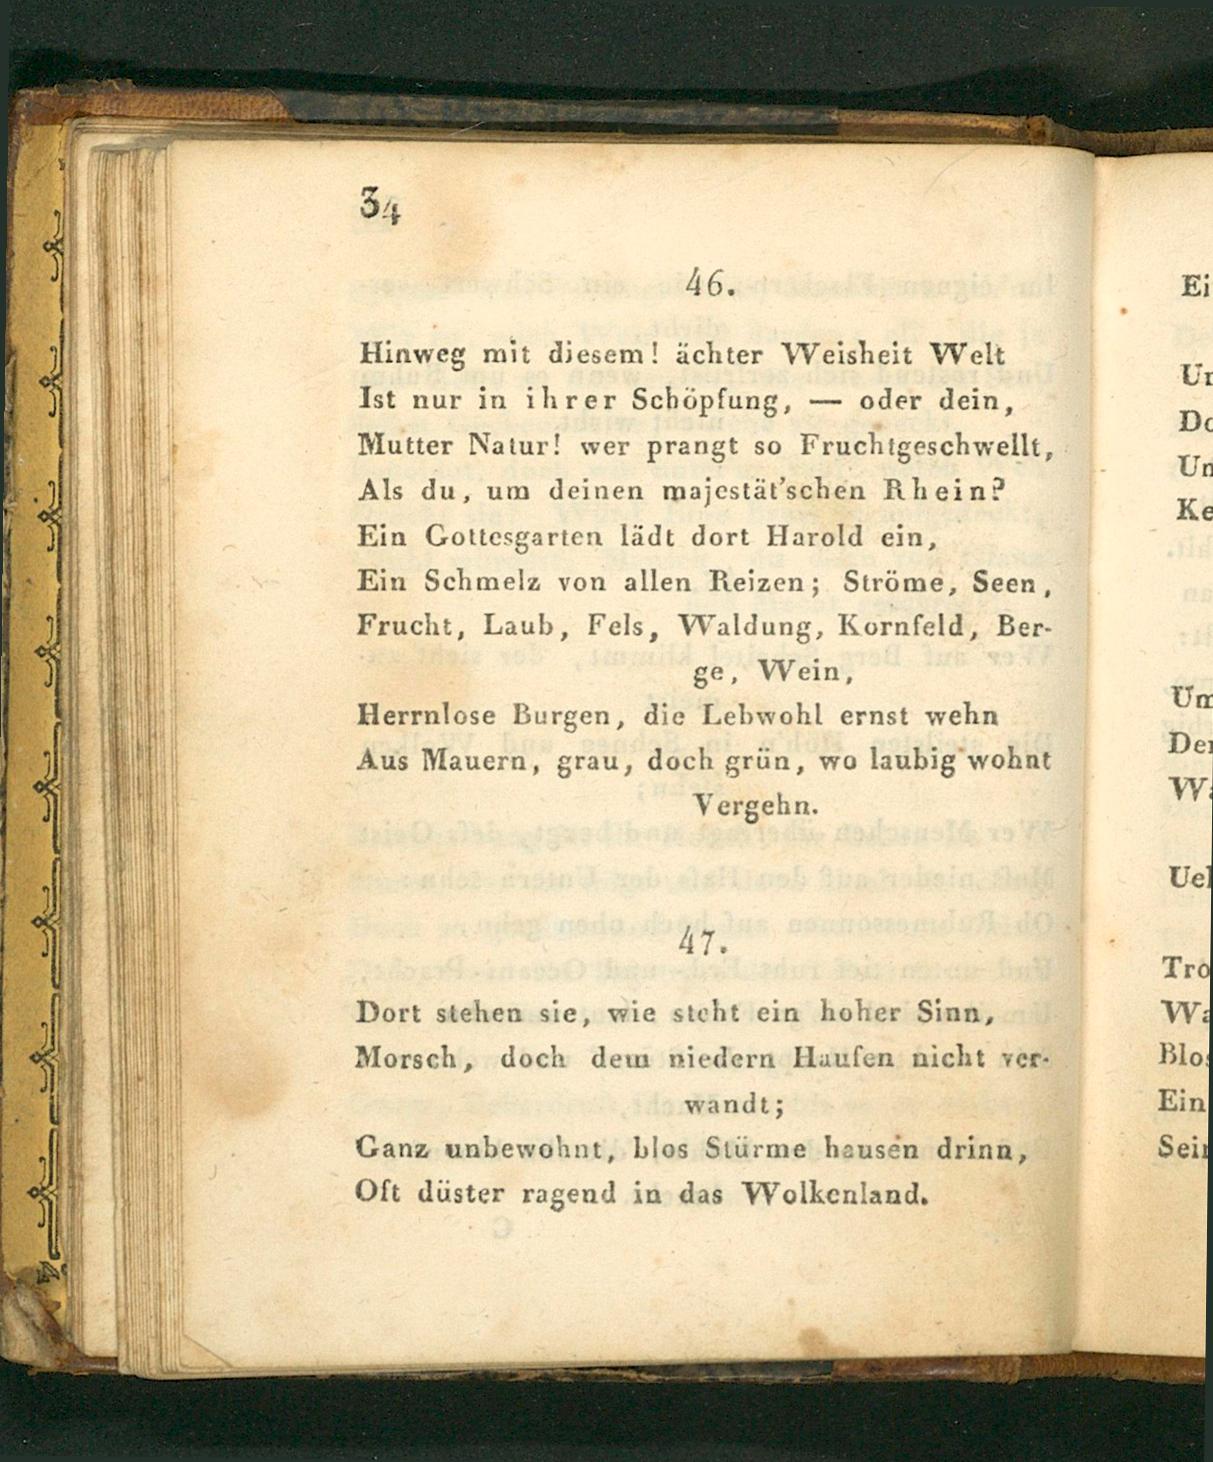 34
46.
Hinweg mit diesem! ächter Weisheit Welt
Ist nur in ihrer Schöpfung, — oder dein,
Mutter Natur! wer prangt so Fruchtgeschwellt,
Als du, um deinen majestät'schen Rhein?
Ein Gottesgarten lädt dort Harold ein,
Ein Schmelz von allen Reizen; Ströme, Seen,
Frucht, Laub, Fels, Waldung, Kornfeld, Ber-
ge, Wein,
Herrnlose Burgen, die Lebwohl ernst wehn
Aus Mauern, grau, doch grün, wo laubig wohnt
Vergehn.
47.
Dort stehen sie, wie steht ein hoher Sinn,
Morsch, doch dem niedern Haufen nicht ver-
wandt;
Ganz unbewohnt, blos Stürme hausen drinn,
Oft düster ragend in das Wolkenland.